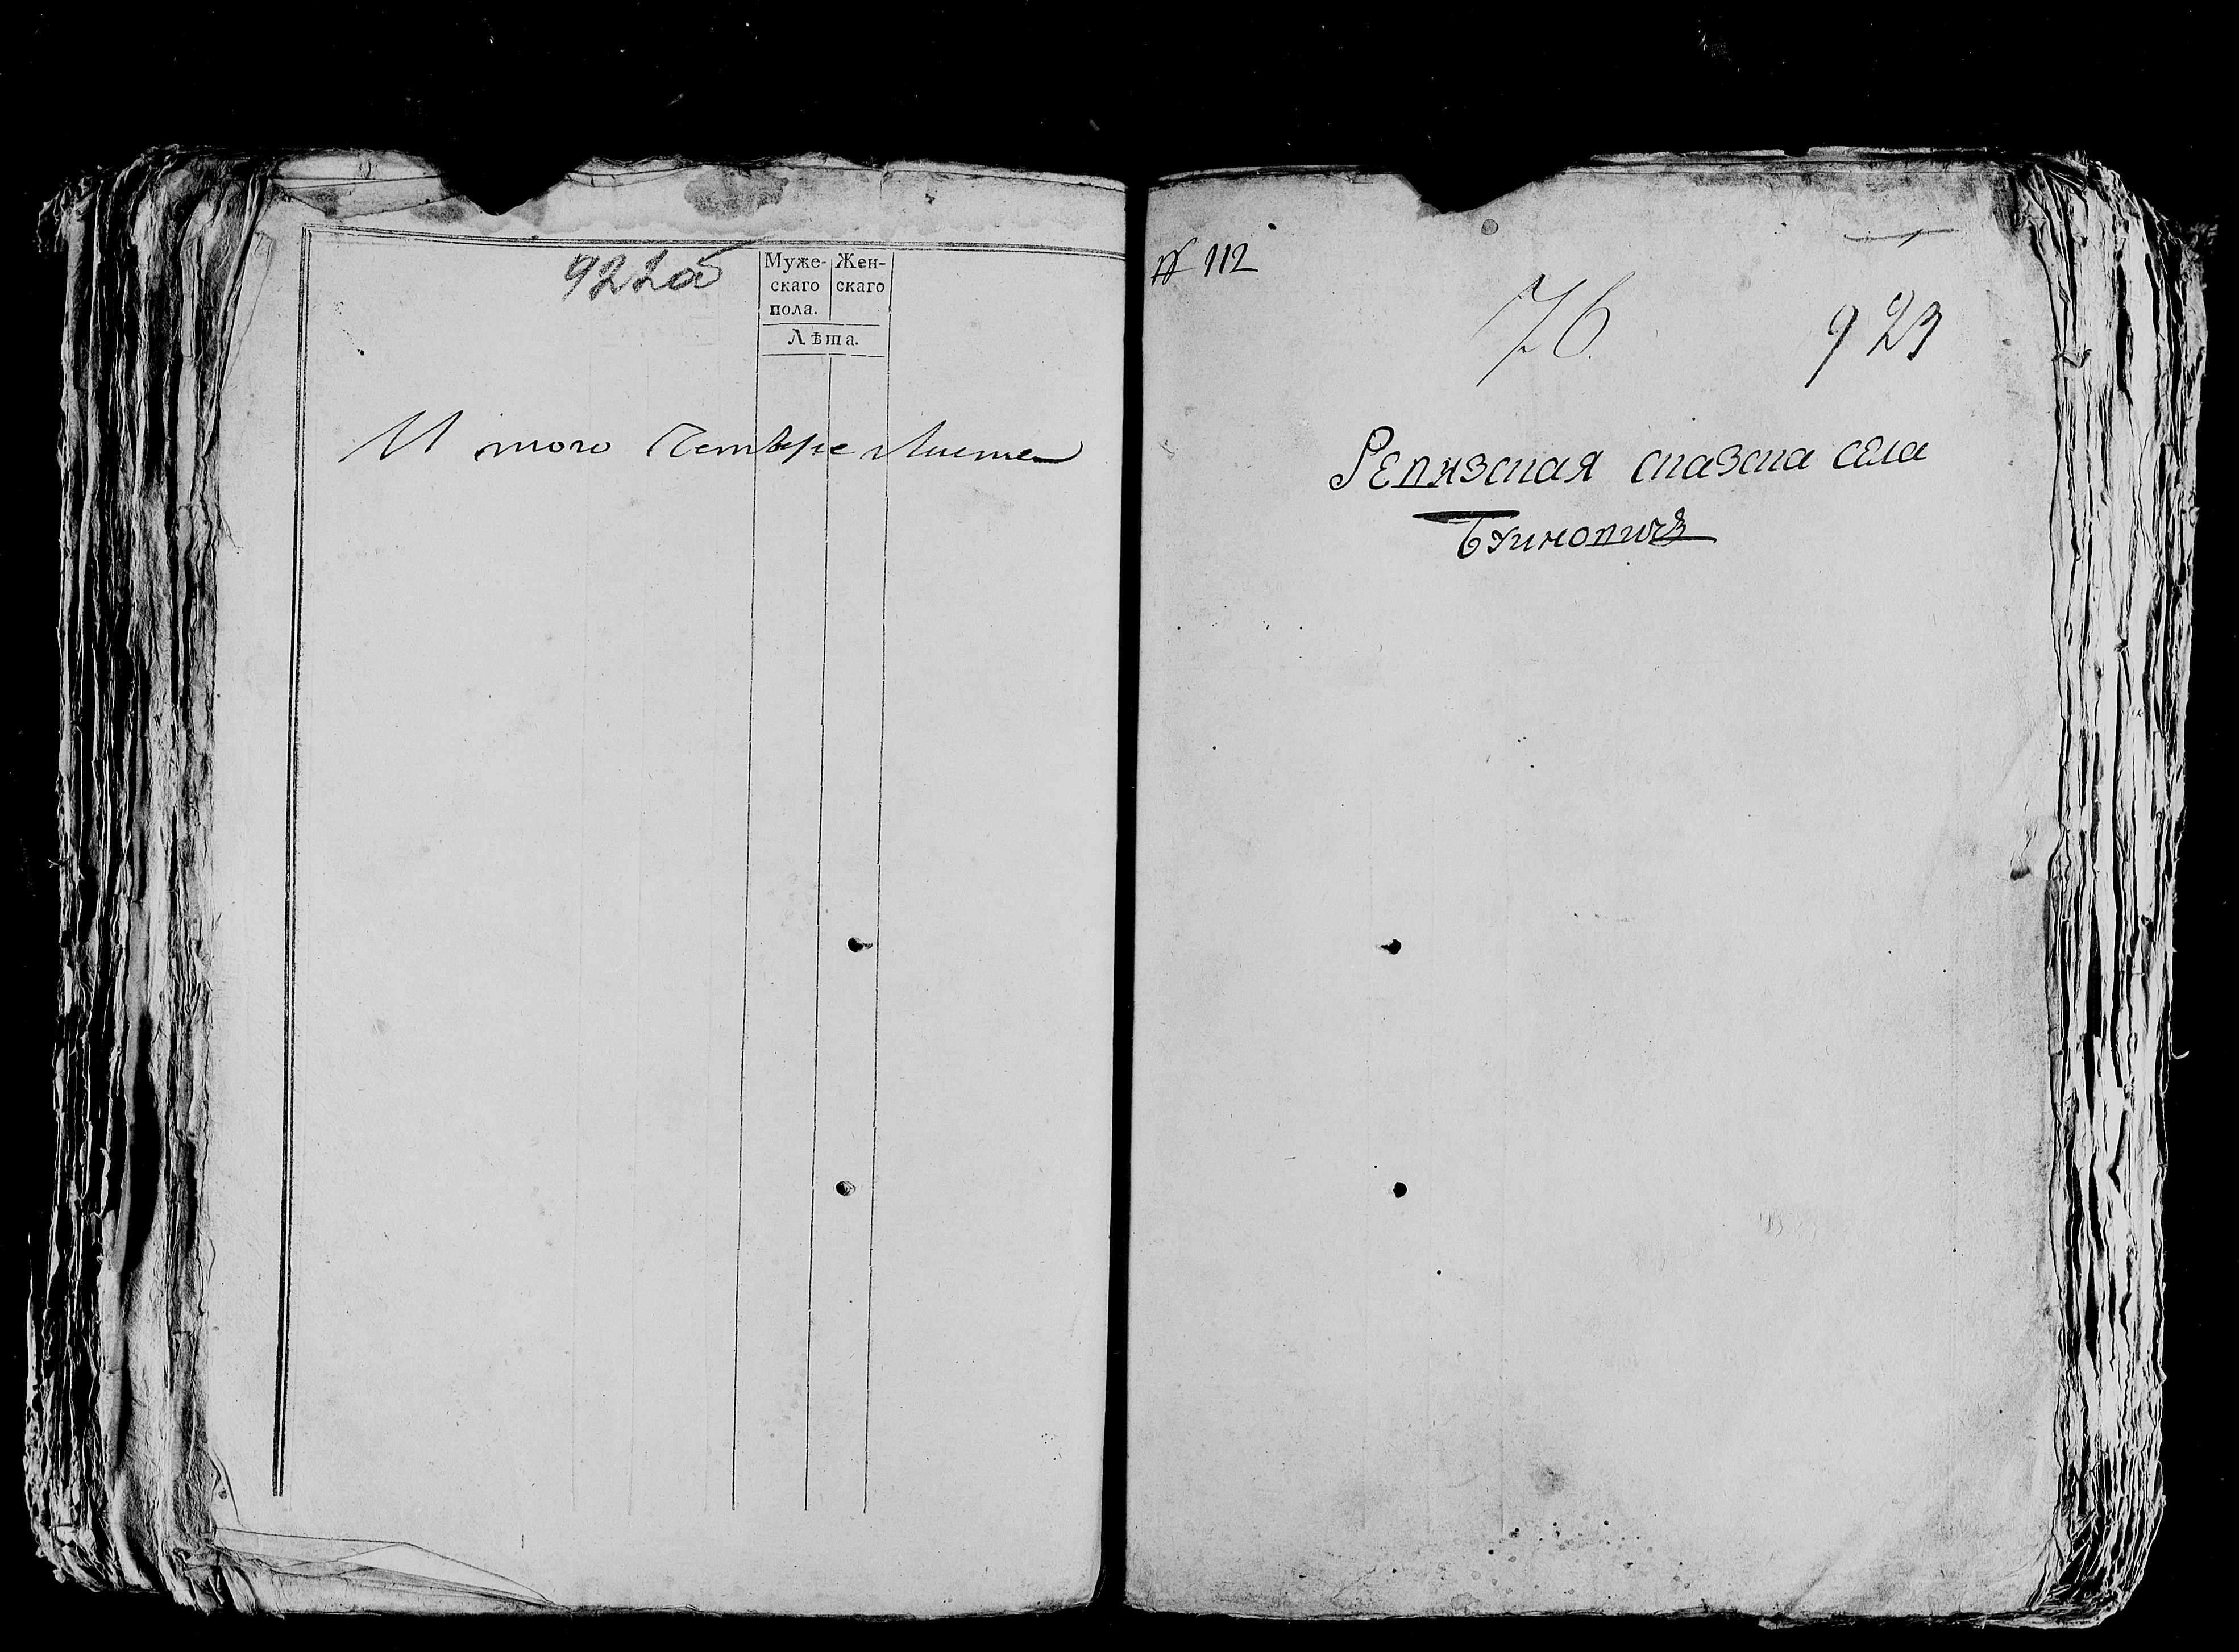 922об
Муже- Жен-
скаго скаго
пола.
Лѣта.
И того Четыре Листа
№ 112
76.
923
Ревизская сказка села